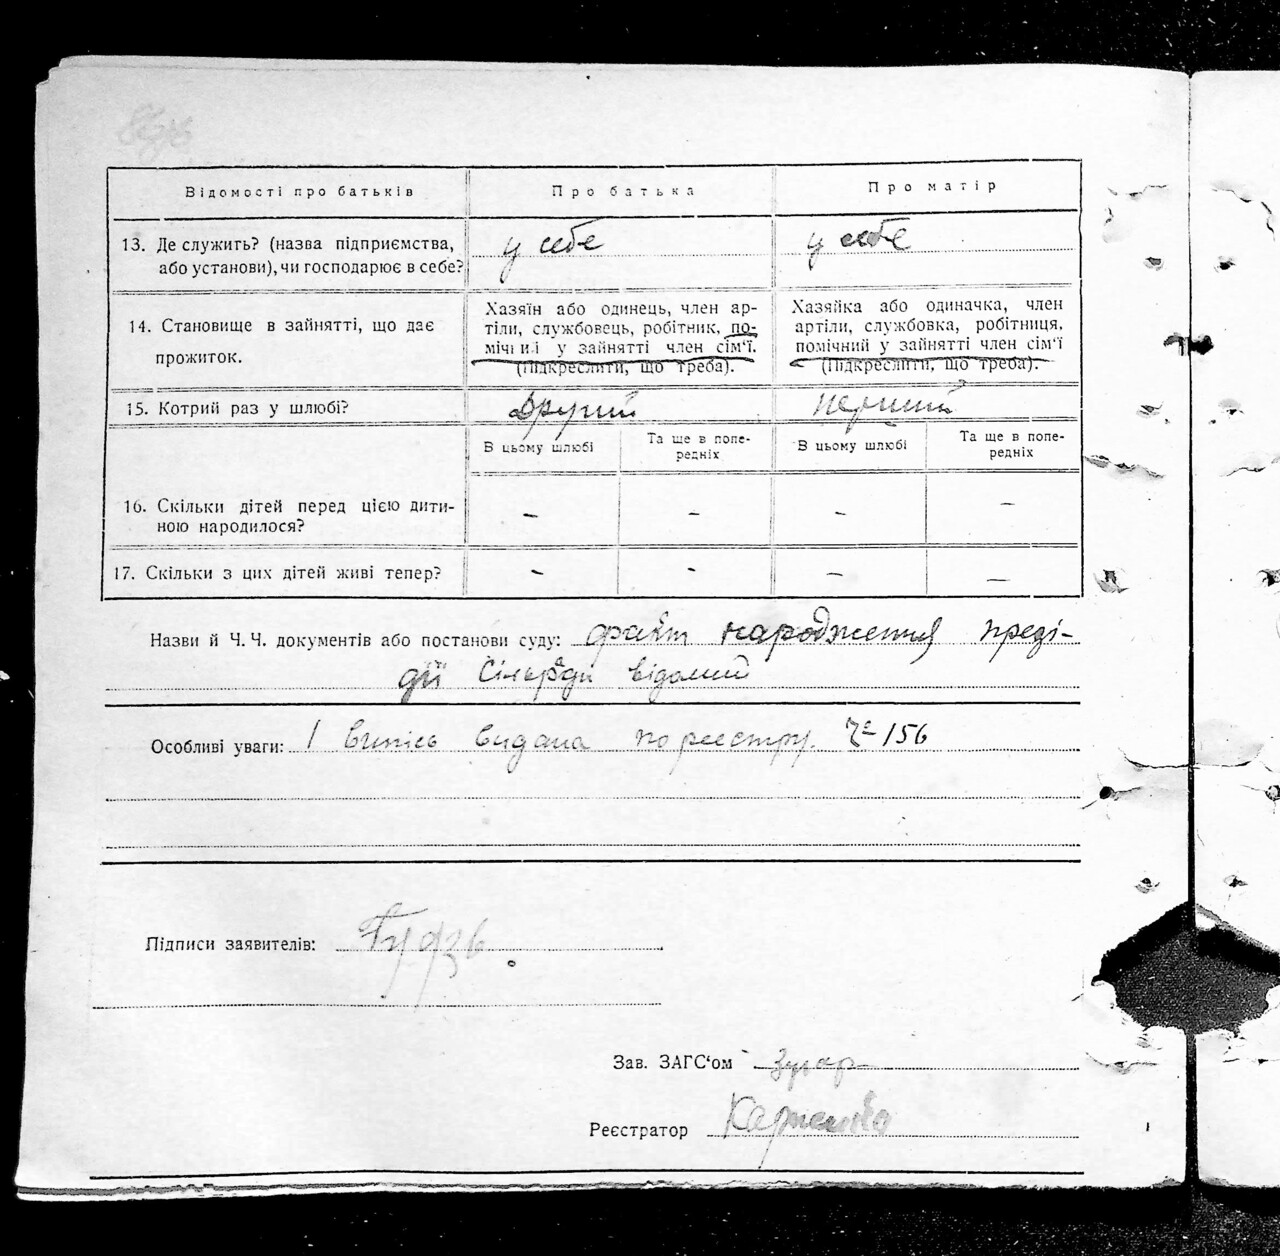 Відомості про батьків Про батька Про матір
13. Де служить? (назва підприємства, або установи), чи господарює в себе? у себе у себе
14. Становище в зайнятті, що дає прожиток.
Хазяїн або одинець, член ар-
тіли, службовець, робітник, по-
мічний у зайнятті член сім'ї.
(Підкреслити, що треба).
Хазяйка або одиначка, член
артіли, службовка, робітниця,
помічний у зайнятті член сім'ї
(Підкреслити, що треба).
15. Котрий раз у шлюбі? другий перший
В цьому шлюбі Та ще в попе-
редніх В цьому шлюбі Та ще в попе-
редніх
16. Скільки дітей перед цією дити-
ною народилося? – – – –
17. Скільки з цих дітей живі тепер? – – – –
Назви й Ч. Ч. документів або постанови суду: факт народження презі-
дії Сільради відомий
Особливі уваги: 1 випись видана по реєстру № 156
Підписи заявителів:
Зав. ЗАГС'ом
Реєстратор